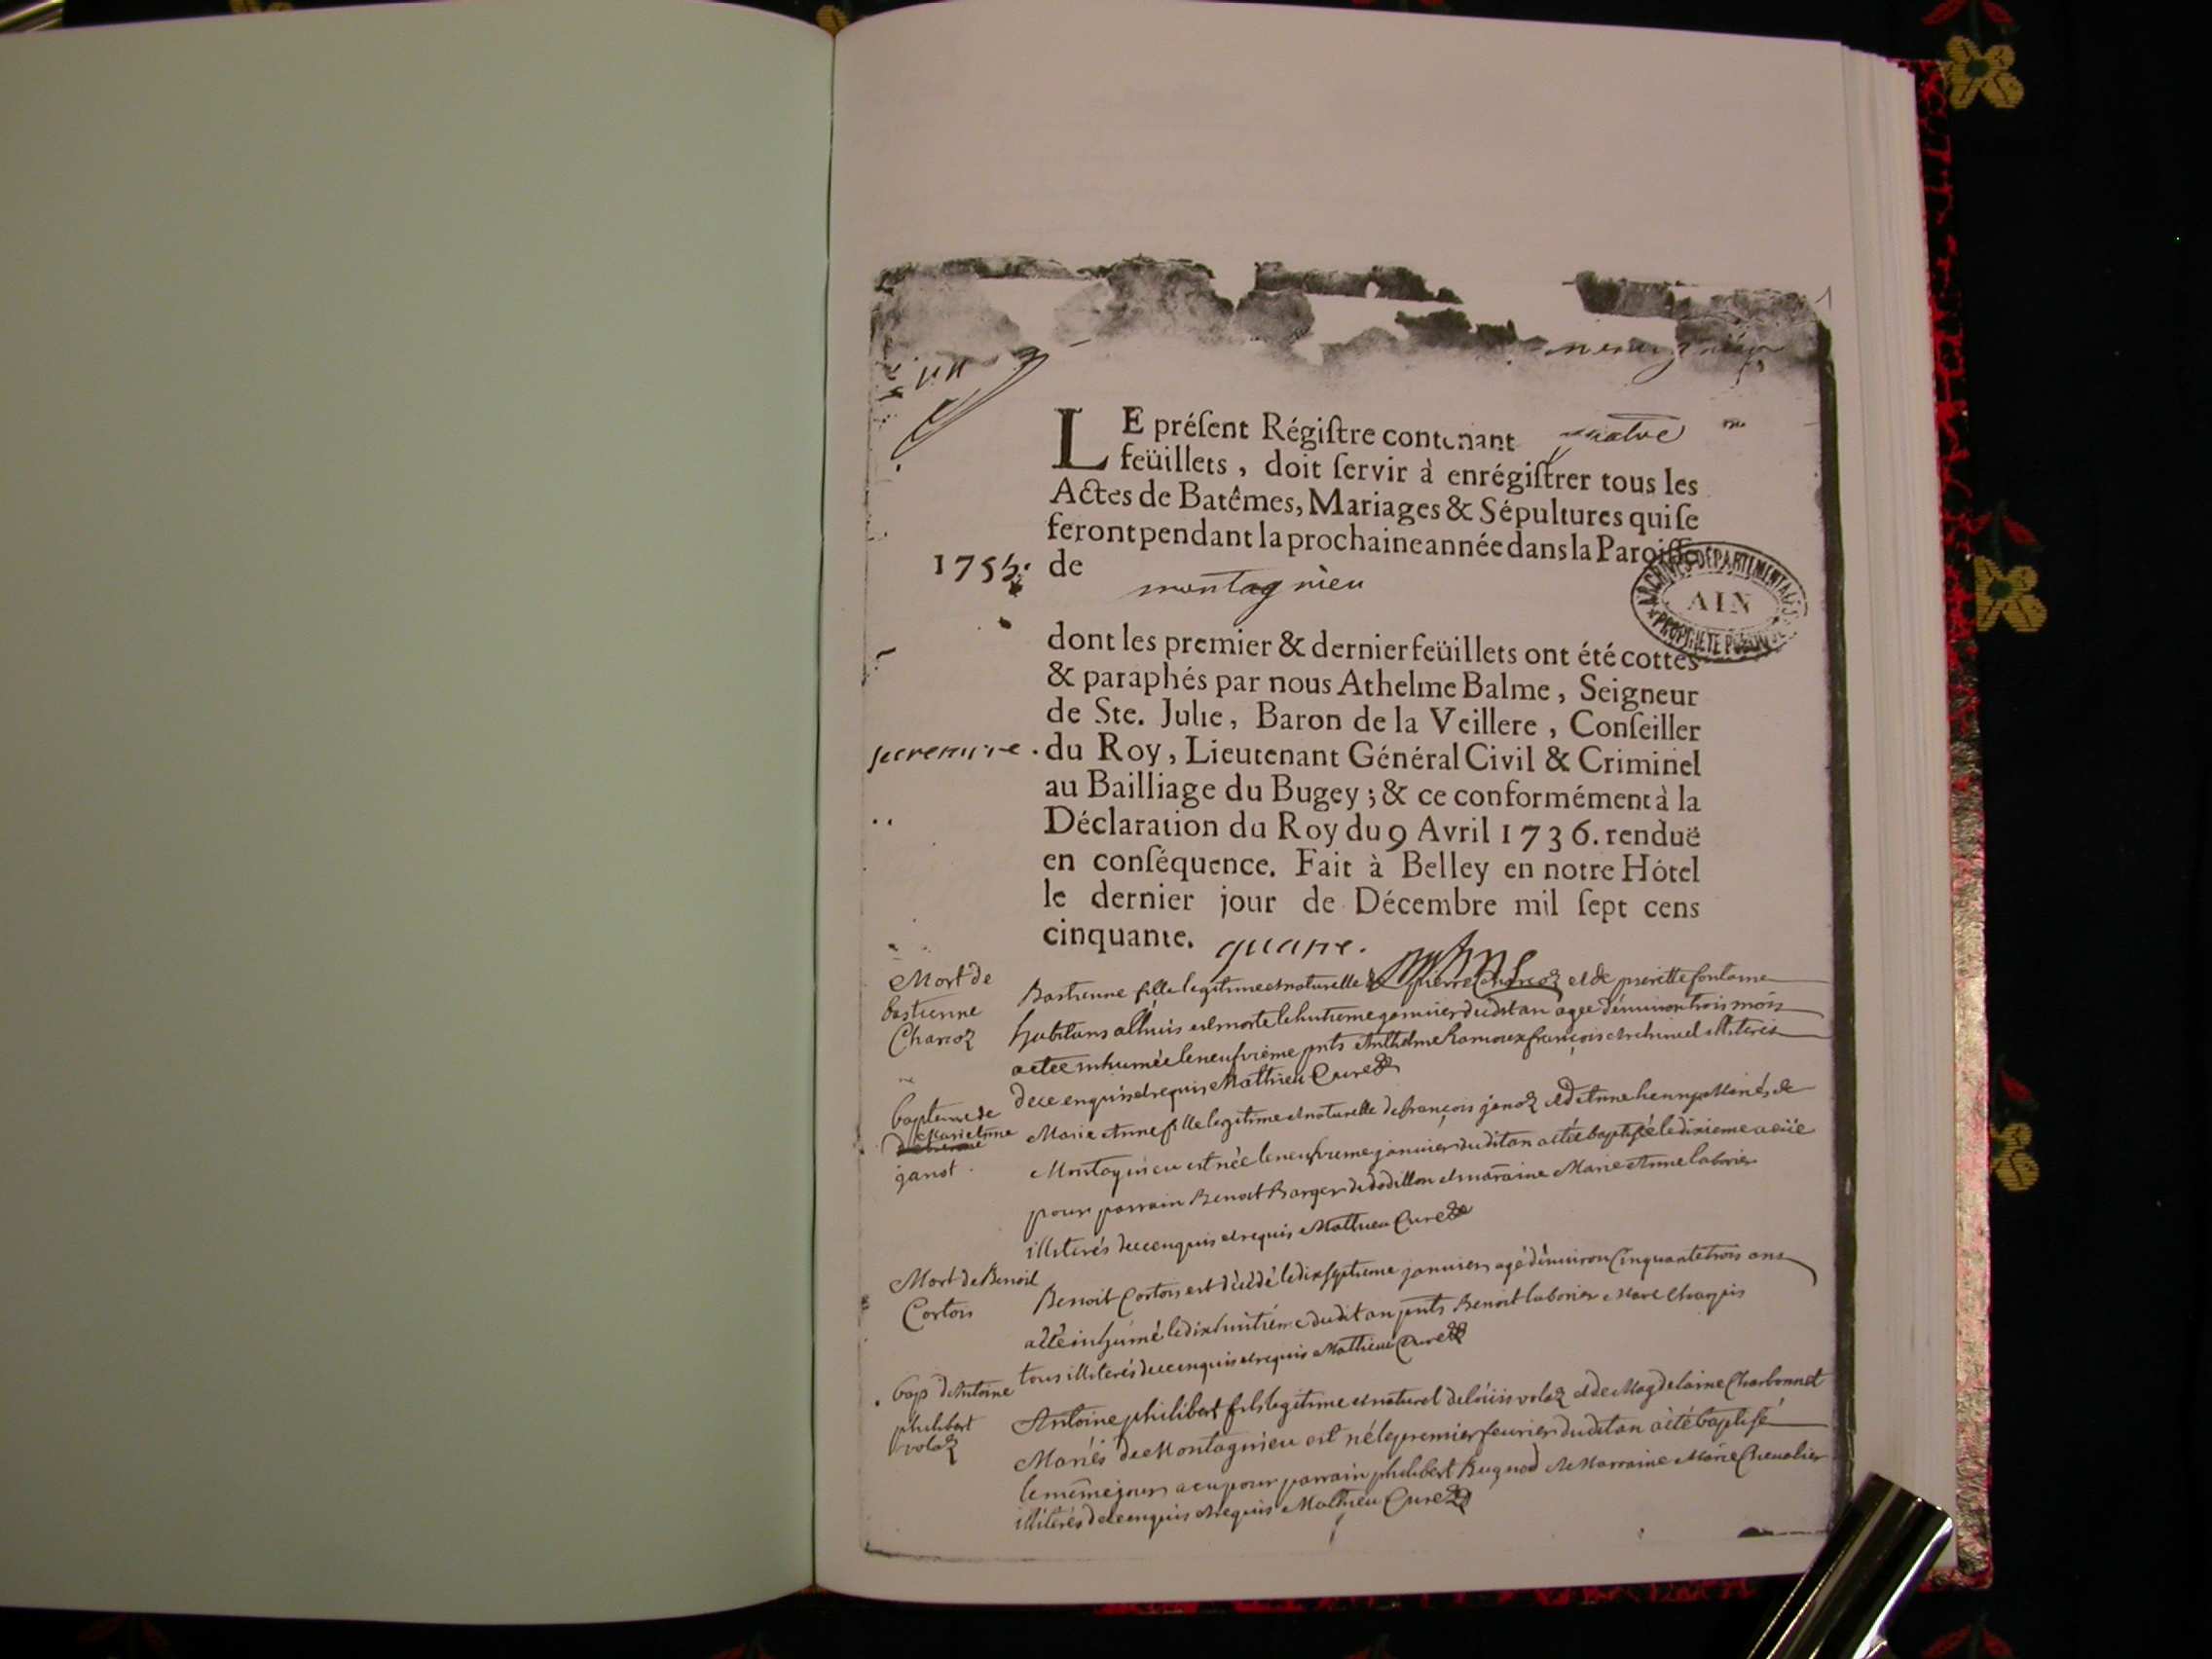 1
LE préſent Régiſtre contenant quatre
feüillets, doit ſervir à enrégiſtrer tous les
Actes de Batêmes, Mariages & Sépultures qui ſe
feront pendant la prochaine année dans la Paroiſſe
1755. de montagnieu
ARCHIVES DÉPARTEMENTALES
AIN
PROPRIÉTÉ PUBLIQUE
dont les premier & dernier feüillets ont été cottés
& paraphés par nous Athelme Balme, Seigneur
de Ste. Julie, Baron de la Veillere, Conſeiller
du Roy, Lieutenant Général Civil & Criminel
au Bailliage du Bugey; & ce conformément à la
Déclaration du Roy du 9 Avril 1736. renduë
en conſéquence. Fait à Belley en notre Hôtel
le dernier jour de Décembre mil ſept cens
cinquante. quatre.
Mort de
bastienne
Charcoz
Bastienne fille legitime et naturelle de pierre Charcoz et de pierette fontaine
habitans est morte le huitieme janvier dudit an agée d'environ trois mois
a étée inhumée le neufvième pnts Anthelme françois illiterés
de ce enquis et requis Mathieu Curé
bapteme de
Marie Anne
janot
Marie Anne fille legitime et naturelle de françois janoz et d'Anne henry Mariés de
Montagnieu est née le neufvieme janvier dudit an a étée baptisée le dixieme a eüe
pour parrain Benoit Barger et maraine Marie Anne laborier
illiterés de ce enquis et requis Mathieu Curé
Mort de Benoit
Cortois
Benoit Cortois est décédé le dixseptieme janvier agé d'environ Cinquante trois ans
a été inhumé le dixhuitième dudit an pnts Benoit laborier Marc
tous illiterés de ce enquis et requis Mathieu Curé
bap d'Antoine
philibert
volaz
Antoine philibert fils legitime et naturel de loüis volaz et de Magdelaine Charbonnet
Mariés de Montagnieu est né le premier fevrier dudit an a été baptisé
le même jour a eu pour parrain philibert Bugnod et Marraine Marie Chevalier
illiterés de ce enquis et requis Mathieu Curé